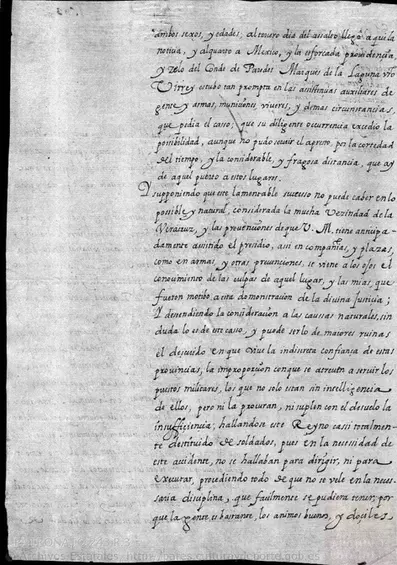 ambos sexos, y edades, al tercero dia del assalto llegò aqui la
noticia, y al quarto a Mexico, y la esforcada providencia,
y zelo del Conde de Paredes Marques de la Laguna vro
Virrey estubo tan prompta en las assistencias auxiliares de
gente y armas, municiones viveres, y demas circunstancias,
que pedia el caso; que su diligente ocurrencia excedio la
posibilidad, aunque no pudo seguir el apreto, por la cortedad
del tiempo, y la considerable, y fragosa distancia, que ay
de aquel puerto a estos lugares.
Y supponiendo que este lamentable sucesso no puede caber en lo
possible y natural, considerada la mucha Vezindad de la
Veracruz, y las prevenciones de que V. M. tiene anticipa-
damente assistido el presidio, assi en compañias, y plazas,
como en armas, y otras prevenciones, se viene a los ojos el
conocimiento de las culpas de aquel lugar, y las mias, que
fueron motibo a esta demonstracion de la divina justicia;
Y descendiendo la consideracion a las causas naturales, sin
duda lo es de este caso, y puede serlo de maiores ruinas
el descuido en que vive la indiscreta confianza de estas
provincias, la improporcion con que se acreetn a servir los
puestos militares, los que no solo estan sin intelligencia
de ellos, pero ni la procuran, ni suplen con el desuelo la
insufficiencia; hallandose este Reyno cassi totalmen-
te destituido de soldados, pues en la necessidad de
este accidente, no se hallaban para dirigir, ni para
executar, procediendo todo de que no se vele en la neces-
saria disciplina, que facilmente se pudiera tener; por
que la gente es bastante, los animos buenos, y dociles